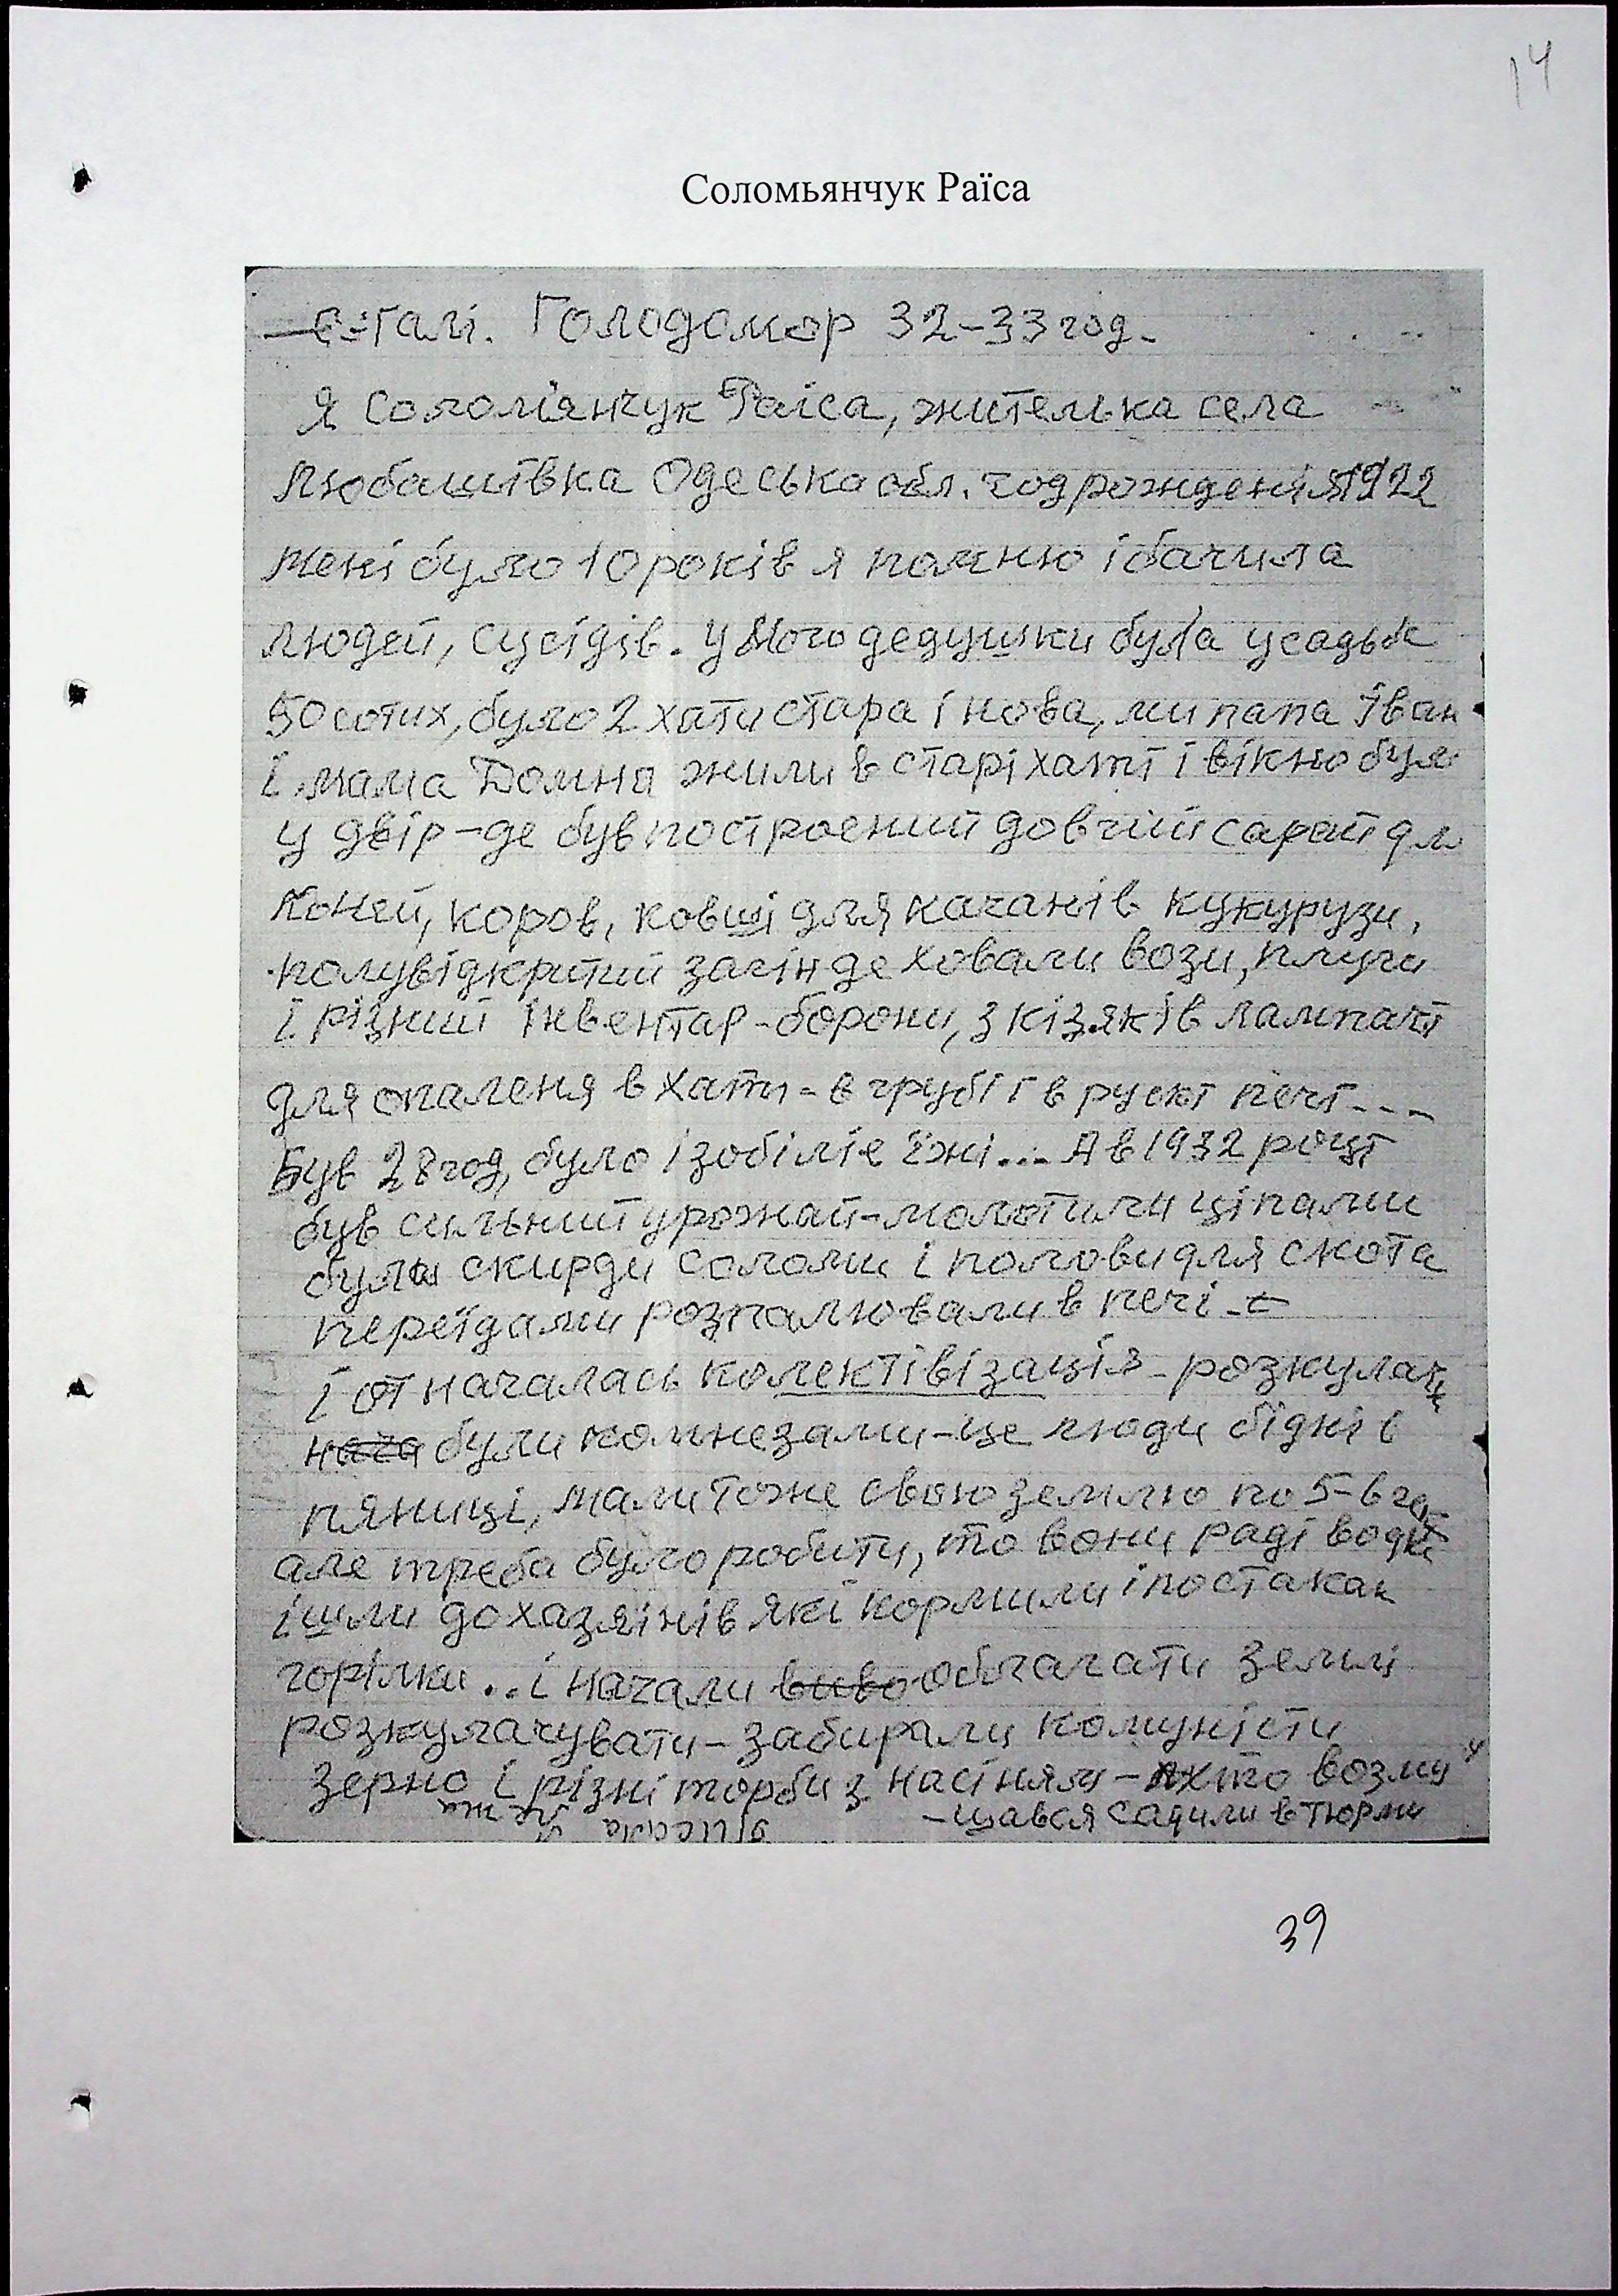 14
Соломьянчук Раїса
Галі. Голодомор 32-33 год.
Я Соломʼянчук Раіса, жителька села
Любашівка Одеська обл. год рожденія 1922
Мені було 10 років я помню і бачила
людей, сусідів. У мого дедушки була усадьба
50 сотих, було 2 хати стара і нова, ми папа Іван
і мама Домна жили в старі хаті і вікно було
у двір - де був построений довгий сарай для
коней, коров, ковші для качанів кукурузи,
полувідкритий загін де ховали вози, плуги
і різний інвентар - борони, з кізяків лампачі
для опаленя в хати - в грубі і в рускі печі ----
Був 28 год, було ізобіліе їжі... А в 1932 році
був сильний урожай - молотили ціпами
були скирди соломи і полови для скота
переїдами розпалювали в печі -
і от началась колектівізація - розкулач
нача були комнезами - це люди бідні і
пяниці, мали тоже свою землю по 5-6 га
але треба було робити, то вони раді водкі
ішли до хазяїнів які кормили і по стакан
горілки .. і начали виво облагати землі
розкулачувати - забирали комуністи
зерно і різні торби з насіням - хто возму
-щався садили в тюрми
писала
39